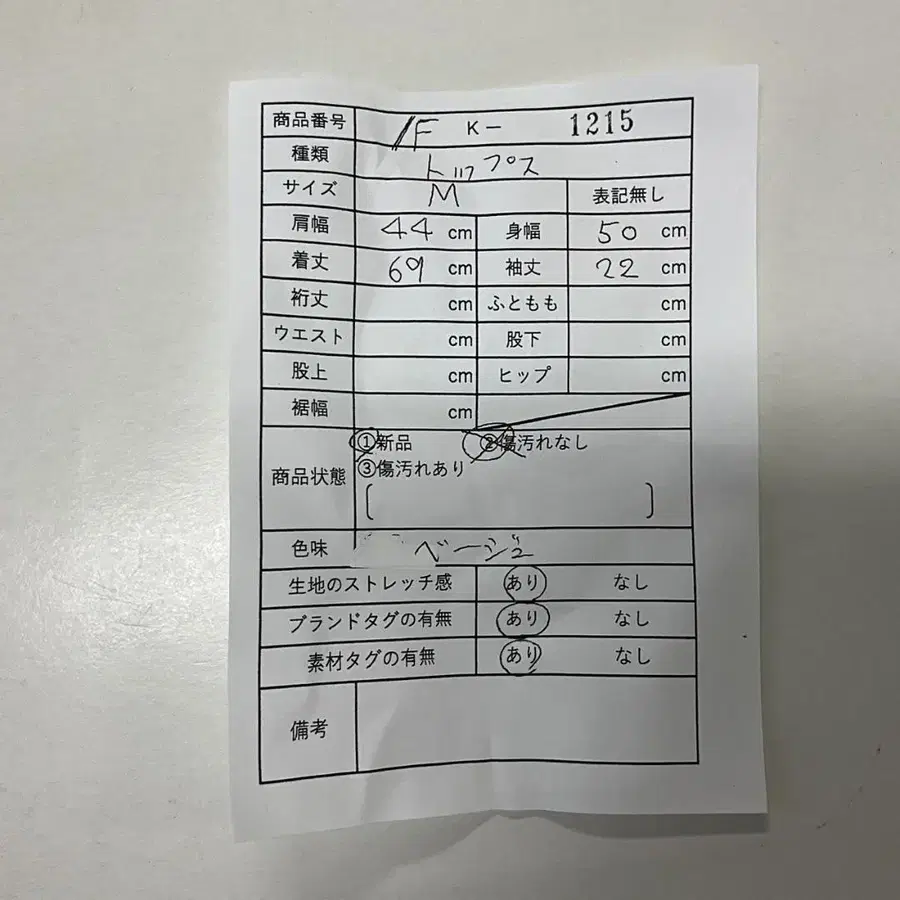 商品番号 /F K－ 1215
種類 トップス
サイズ M 表記無し
肩幅 44 cm 身幅 50 cm
着丈 69 cm 袖丈 22 cm
裄丈 cm ふともも cm
ウエスト cm 股下 cm
股上 cm ヒップ cm
裾幅 cm
商品状態 ①新品 ②傷汚れなし
③傷汚れあり
[ ]
色味 ベージュ
生地のストレッチ感 あり なし
ブランドタグの有無 あり なし
素材タグの有無 あり なし
備考